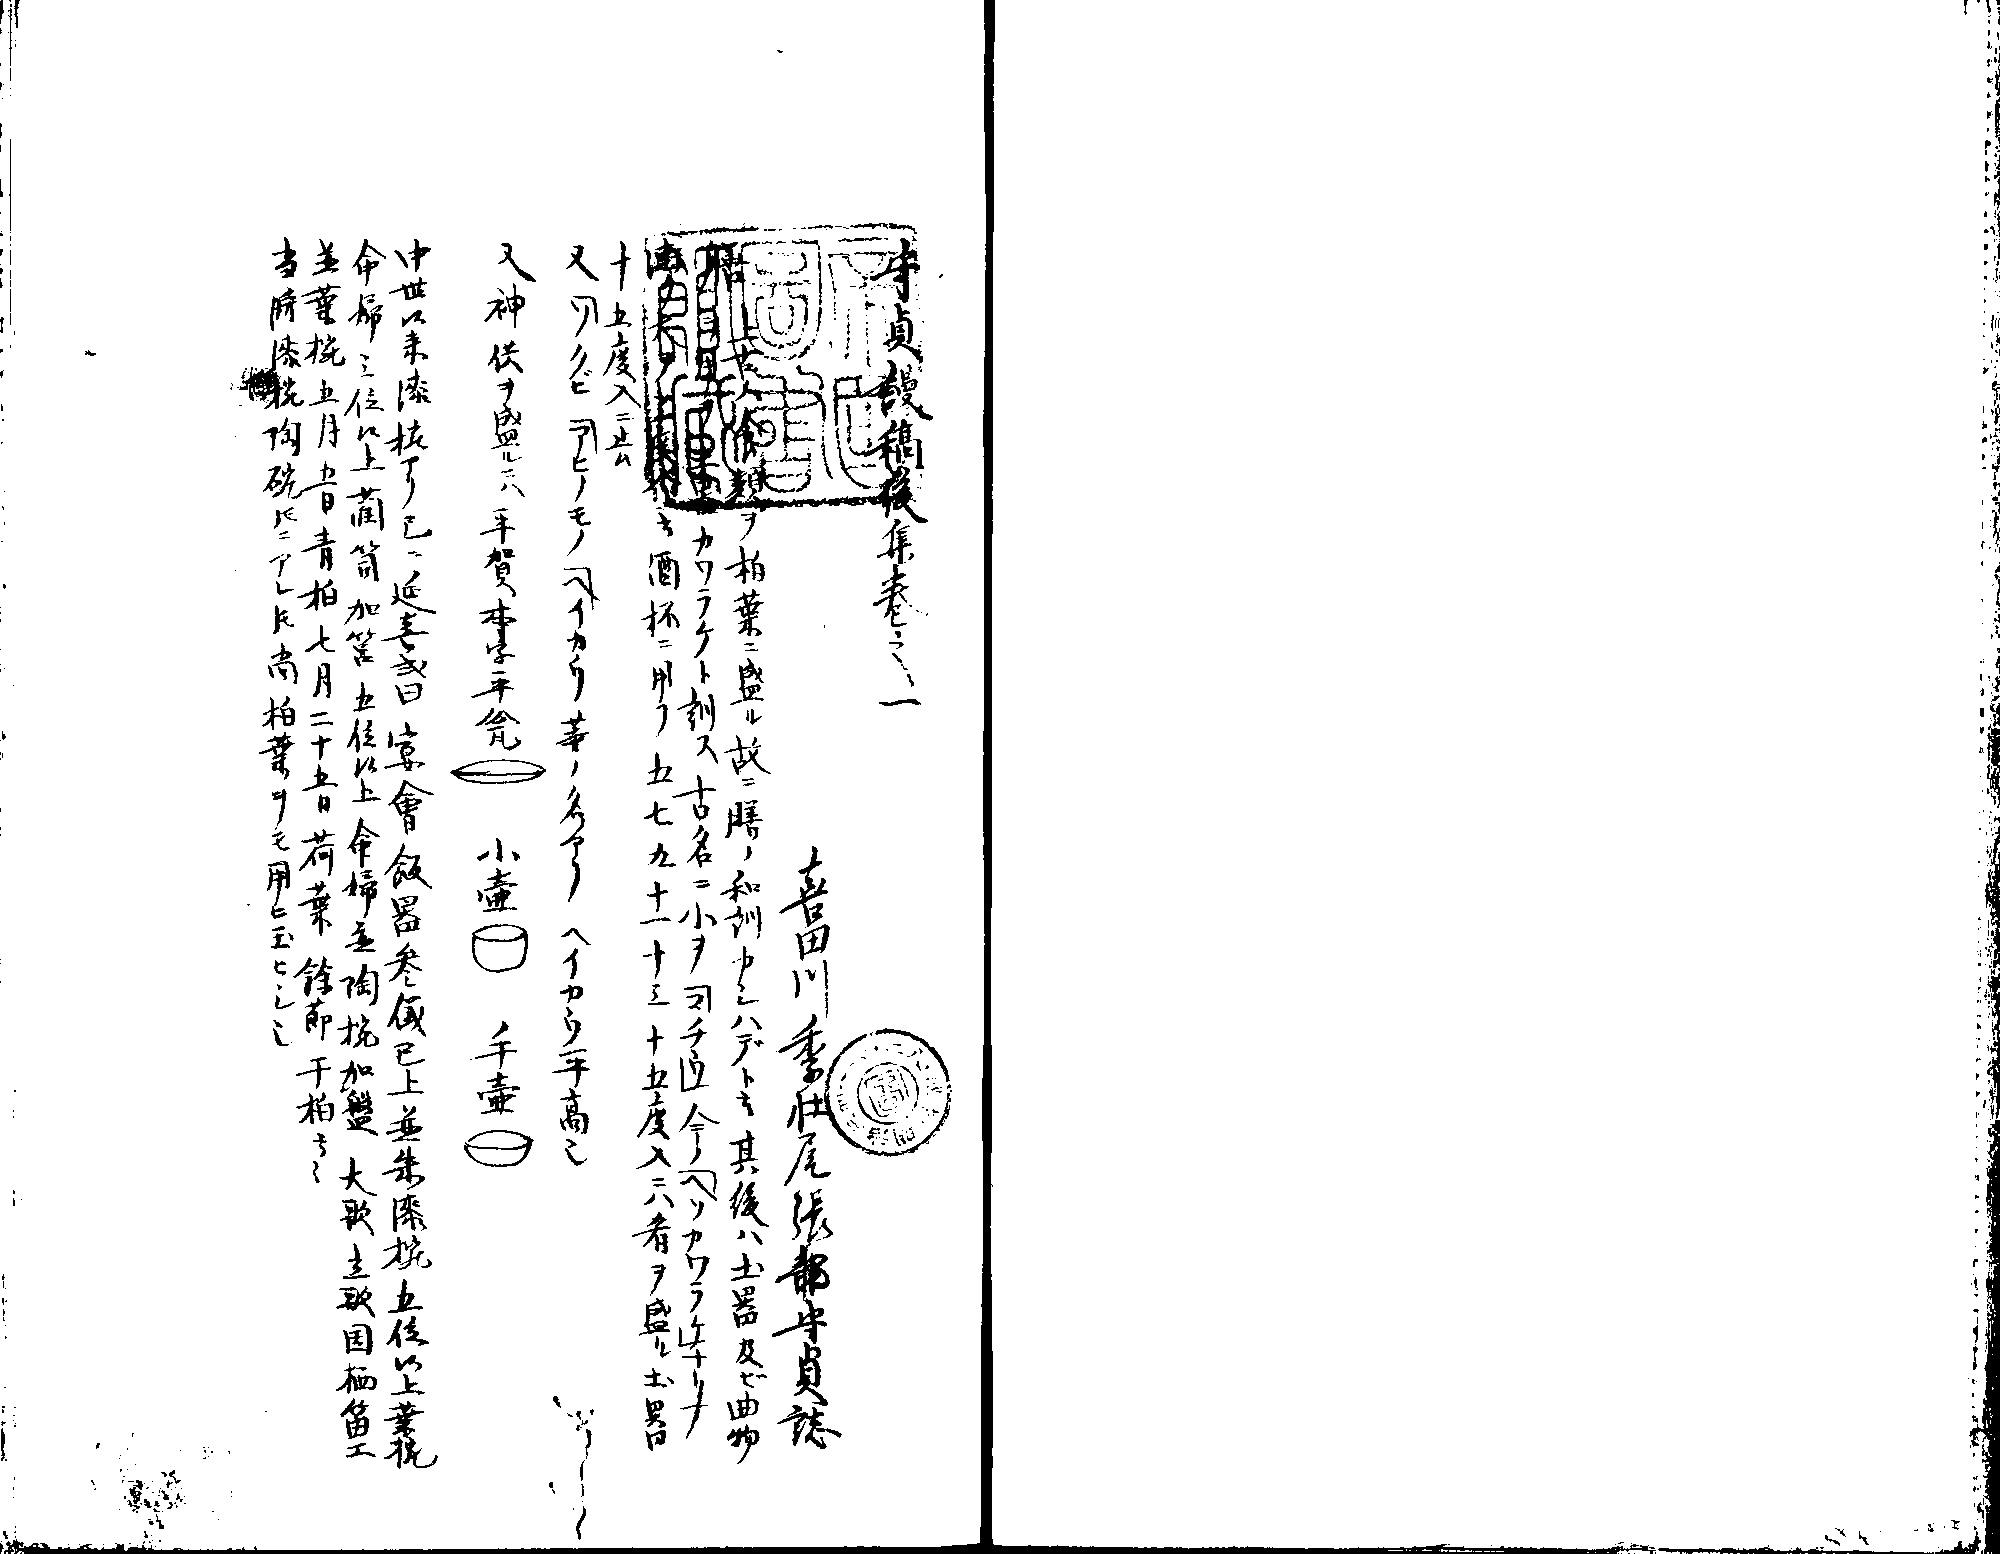 守貞謾稿後集巻之一
喜田川季荘尾張部守貞誌
膳 上古ハ食類ヲ柏葉ニ盛ル故ニ膳ノ和訓カシハデト云其後ハ土器及ビ曲物
カワラケト訓ス古名ニ小ヲコチ今ノヘソカワラケ
云酒杯ニ用フ五七九十一十三十五度入ニハ肴ヲ盛ル土器曰
十五度入ニ止ム
又ワクビアヒノモノヘイカウ等ノ名アリヘイカウ平高也
又神供ヲ盛ルニハ平賀本字平瓮 小壷 手壷
中世以来漆椀アリ已ニ延喜式曰宴會飯器参儀已上並朱漆椀五位以上葉椀
命婦三位以上藺笥加筥五位以上命婦並陶椀加盤大歌立歌国栖笛工
並葉椀五月五日青柏七月二十五日荷葉餘節干柏云々
当時漆椀陶碗トモニアレドモ尚柏葉ヲモ用ヒ玉ヒシ也